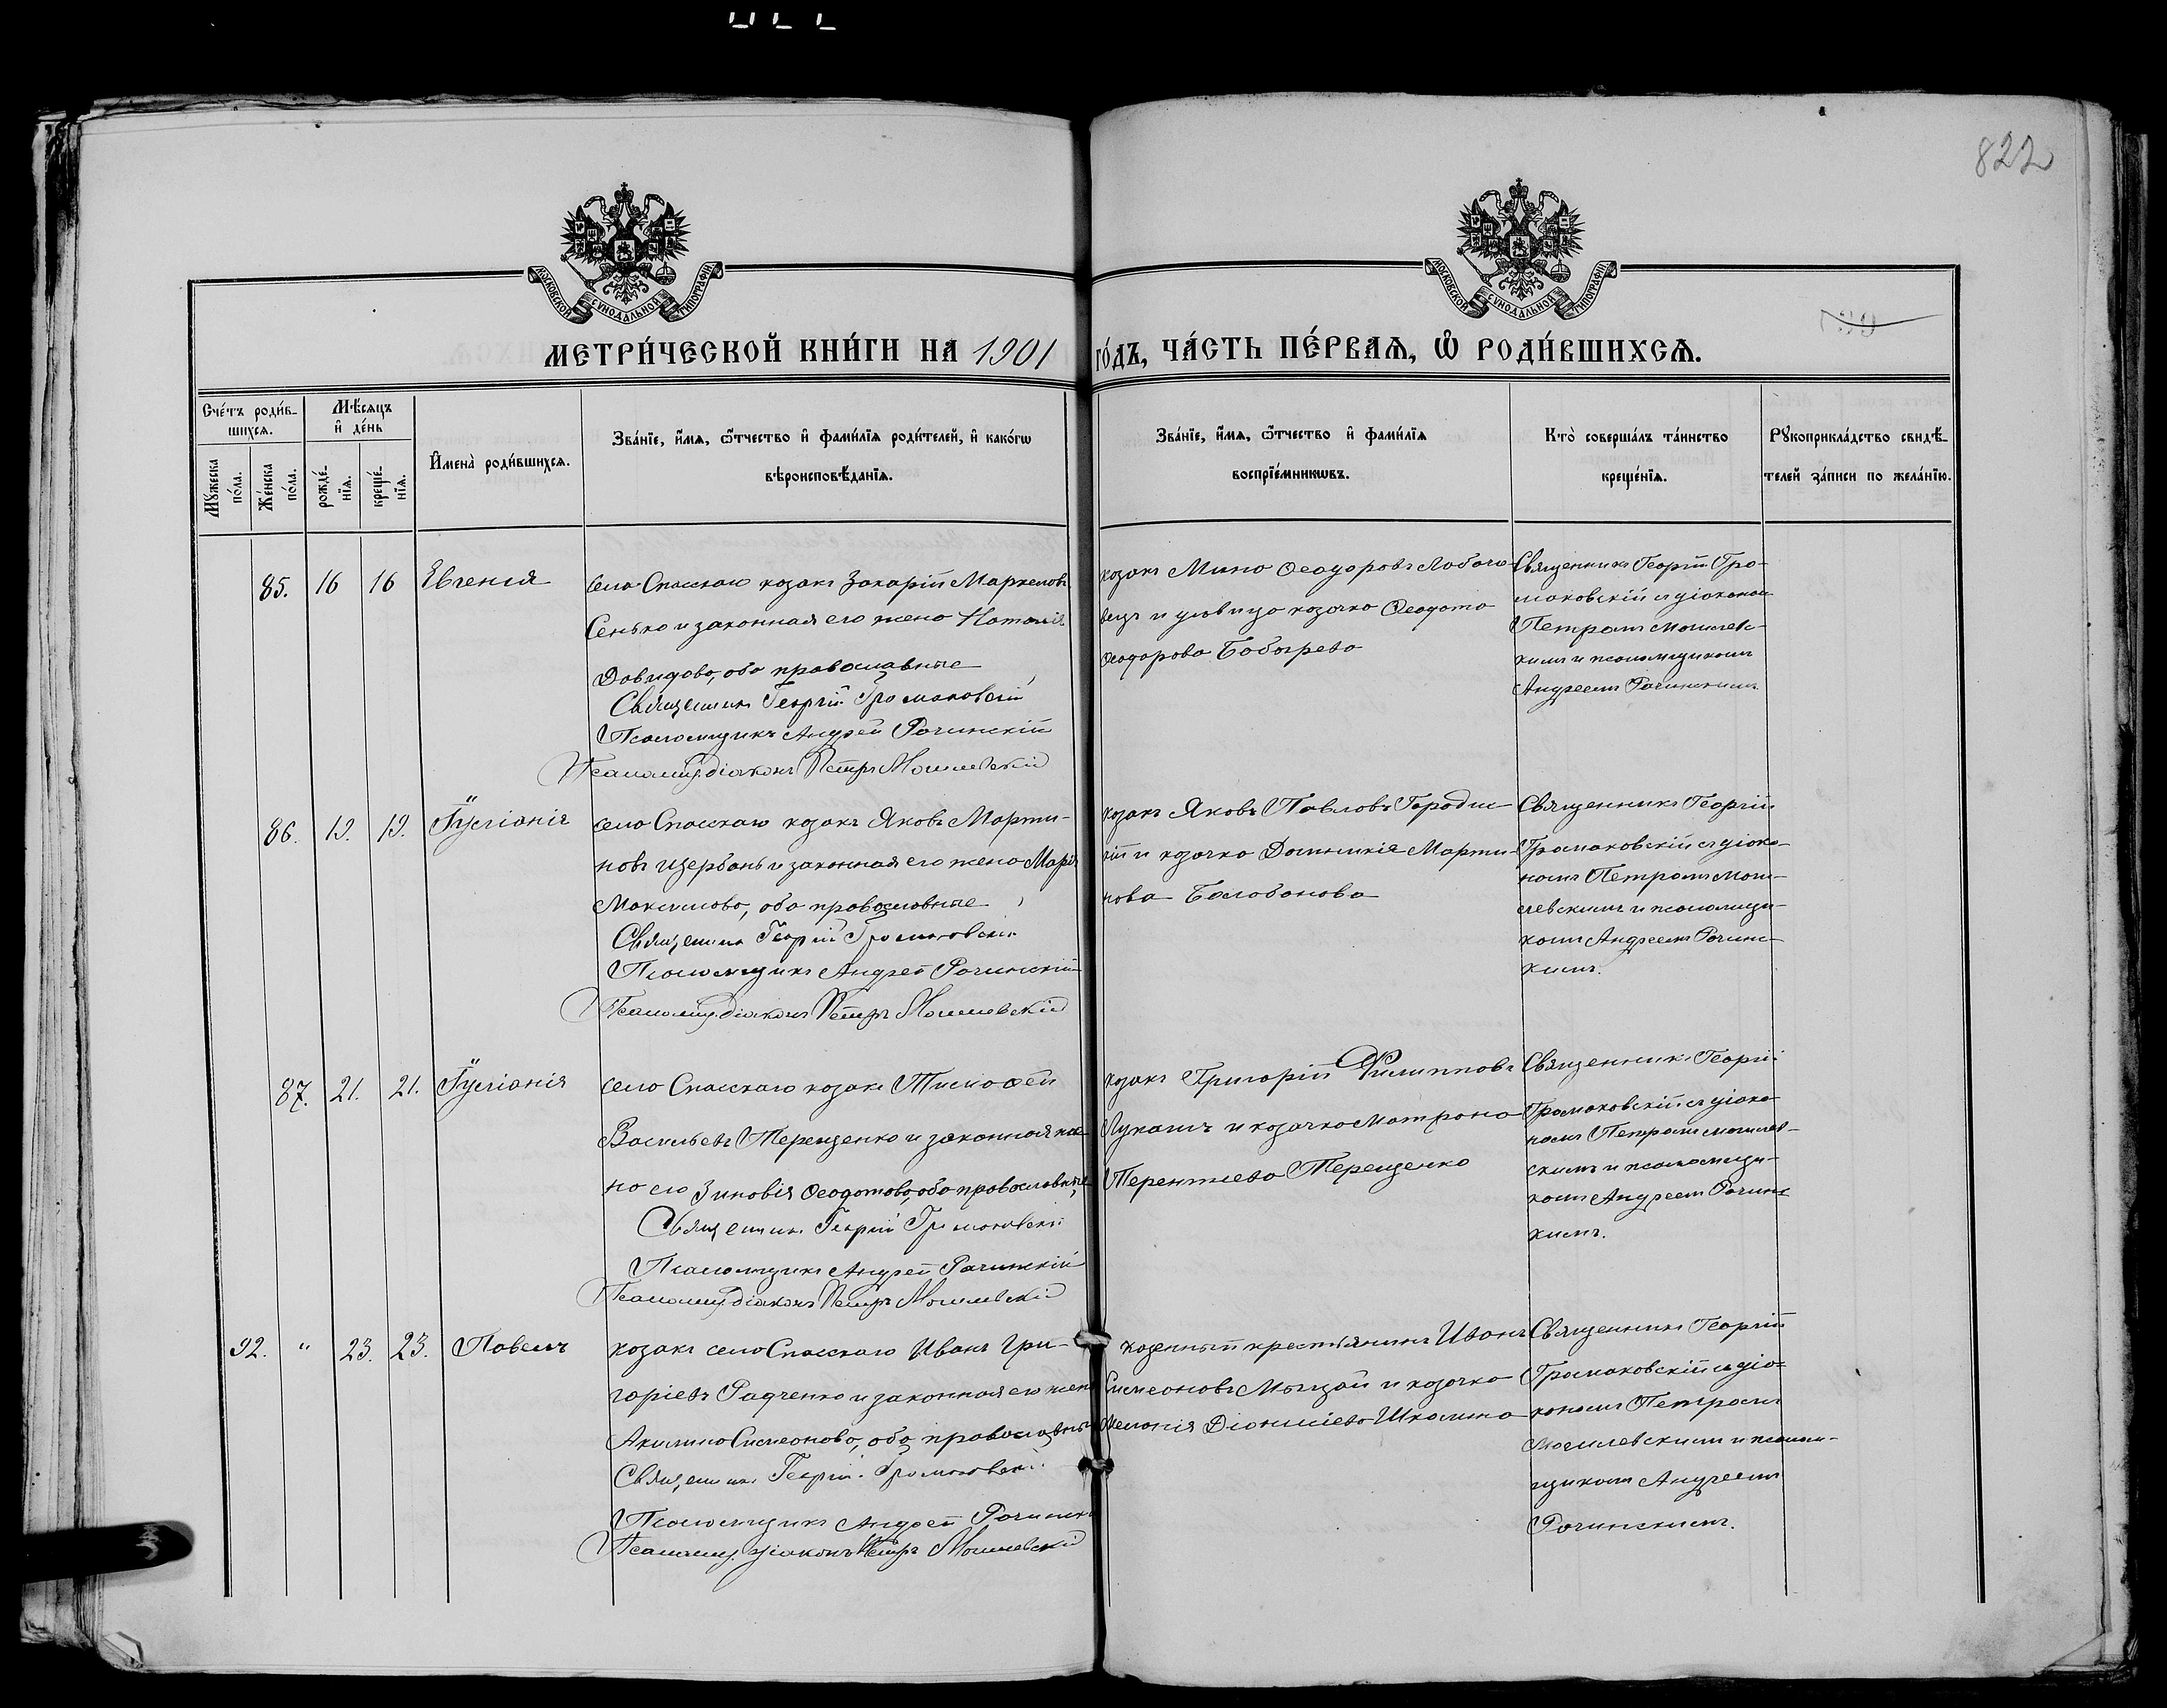 822
МОСКОВСКОЙ СѴНОДАЛЬНОЙ ТИПОГРАФІИ
МОСКОВСКОЙ СѴНОДАЛЬНОЙ ТИПОГРАФІИ
МЕТРИ́ЧЕСКОЙ КНИ́ГИ НА 1901 ГО́ДЪ, ЧА́СТЬ ПЕ́РВАѦ, Ѡ҆ РОДИ́ВШИХСѦ.
Сче́тъ роди́в-
шихсѧ.
Мꙋ́жеска
по́ла.
Же́нска
по́ла.
Мѣ́сѧцъ
и҆ де́нь
рожде́-
нїѧ.
креще́-
нїѧ.
И҆мена̀ роди́вшихсѧ.
Зва́нїе, и҆́мѧ, ѻ҆́тчество и҆ фами́лїѧ роди́телей, и҆ како́гѡ
вѣроисповѣ́данїѧ.
Зва́нїе, и҆́мѧ, ѻ҆́тчество и҆ фами́лїѧ
воспрїе́мникѡвъ.
Кто̀ соверша́лъ та́инство
креще́нїѧ.
Рꙋкоприкла́дство свидѣ́-
телей за́писи по жела́нїю.
85. 16 16 Евгенія
села Спасскаго козакъ Захарій Маркеловъ
Сенько и законная его жена Наталія
Давидова, оба православные
Священникъ Георгій Громаковскій
Псаломщикъ Андрей Рачинскій
Псаломщ. діаконъ Петръ Могилевскій
козакъ Мина Ѳеодоровъ Лобаче-
вецъ и девица козачка Ѳеодота
Ѳеодорова Бобырева
Священникъ Георгій Гро-
маковскій съ діакономъ
Петромъ Могилевс-
кимъ и псаломщикомъ
Андреемъ Рачинскимъ.
86. 19. 19. Іуліанія
села Спасскаго козакъ Яковъ Марти-
новъ Щербань и законная его жена Марія
Максимова, оба православные
Священникъ Георгій Громаковскій
Псаломщикъ Андрей Рачинскій
Псаломщ. діаконъ Петръ Могилевскій
козакъ Яковъ Павловъ Городис-
кій и козачка Домникія Марти-
нова Балабанова
Священникъ Георгій
Громаковскій съ діако-
номъ Петромъ Моги-
левскимъ и псаломщи-
комъ Андреемъ Рачинс-
кимъ.
87. 21. 21. Іуліанія
села Спасскаго козакъ Тимофей
Васильевъ Терещенко и законная же-
на его Зиновія Ѳеодотова, оба православные,
Священникъ Георгій Громаковскій
Псаломщикъ Андрей Рачинскій
Псаломщ. діаконъ Петръ Могилевскій
козакъ Григорій Филипповъ
Лукашъ и козачка Матрона
Терентіева Терещенко
Священникъ Георгій
Громаковскій съ діако-
номъ Петромъ Могилев-
скимъ и псаломщи-
комъ Андреемъ Рачинс
кимъ.
92. " 23. 23. Павелъ
козакъ села Спасскаго Иванъ Гри-
горіевъ Радченко и законная его жена
Акилина Симеонова, оба православные
Священникъ Георгій Громаковскій
Псаломщикъ Андрей Рачинскій
Псаломщ. діаконъ Петръ Могилевскій
казенный крестьянинъ Иванъ
Симеоновъ и козачка
Меланія Діонисіева Шкалина
Священникъ Георгій
Громаковскій съ діа-
кономъ Петромъ
Могилевскимъ и псалом-
щикомъ Андреемъ
Рачинскимъ.